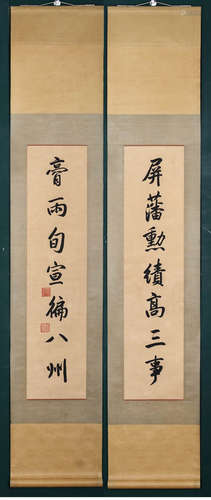 屏藩勲績高三事
膏雨旬宣徧八州